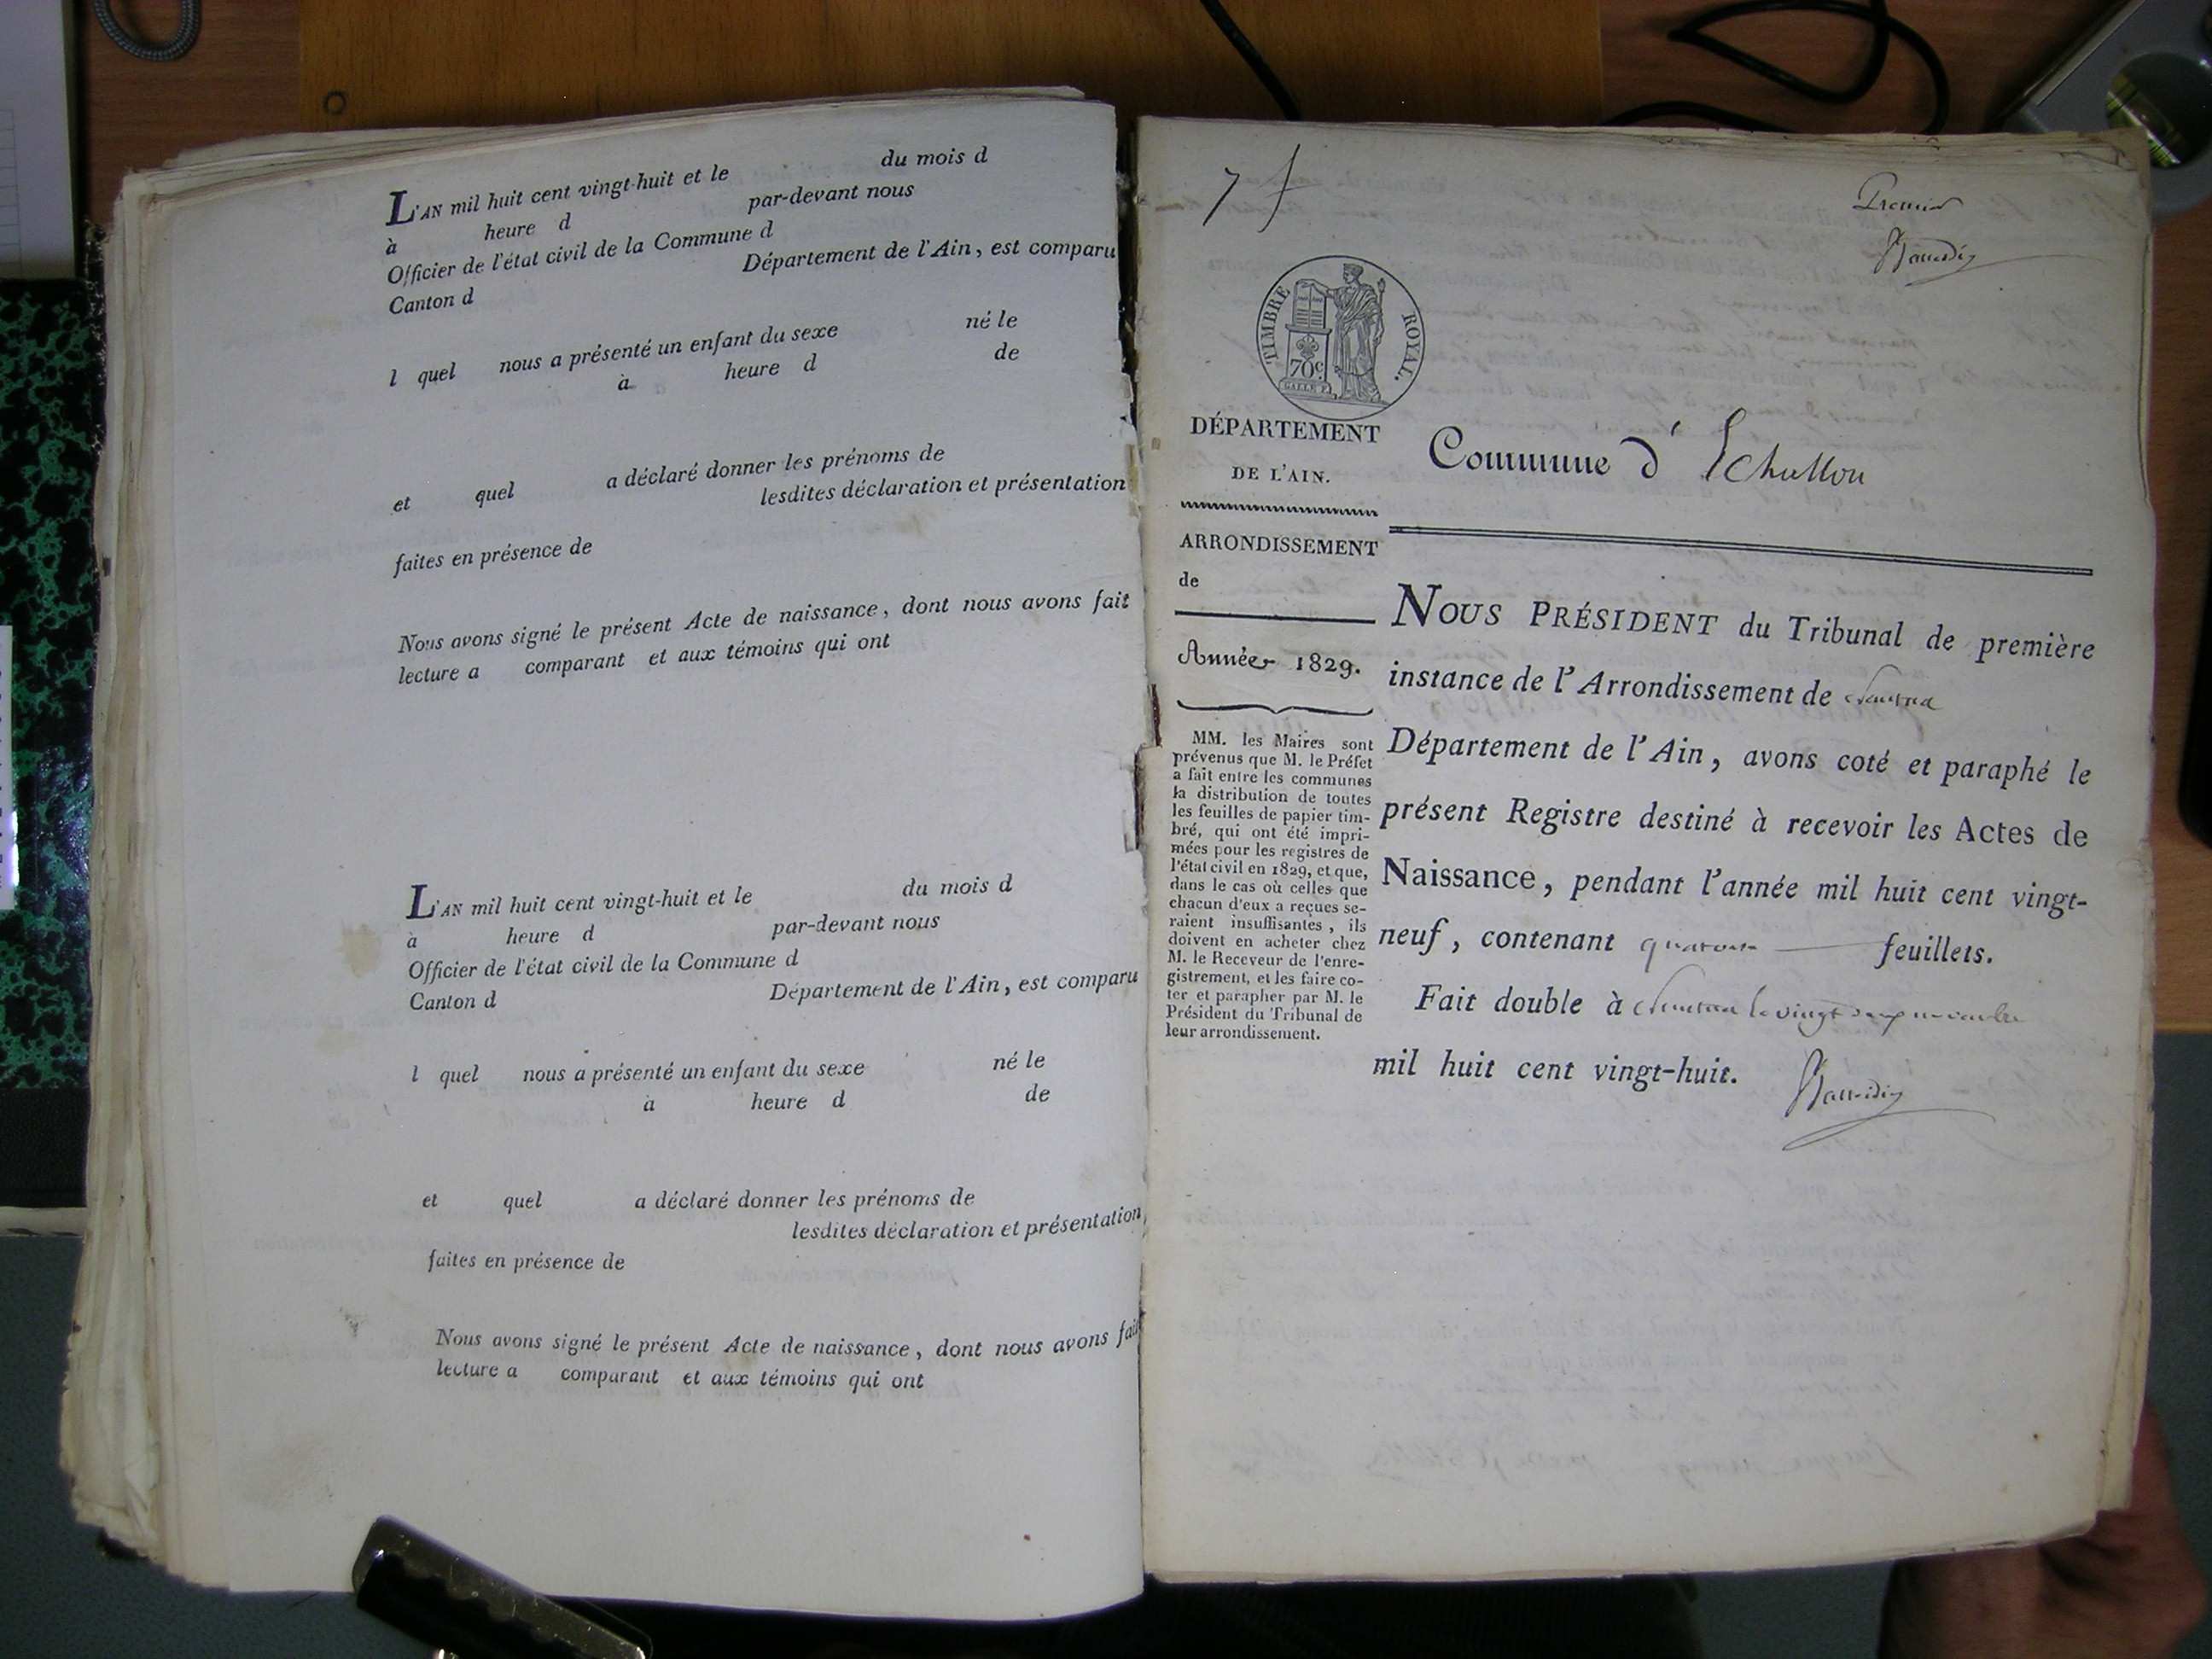 L'AN mil huit cent vingt-huit et le du mois d
à heure d par-devant nous
Officier de l'état civil de la Commune d
Canton d Département de l'Ain, est comparu
l quel nous a présenté un enfant du sexe né le
à heure d de
et quel a déclaré donner les prénoms de
lesdites déclaration et présentation
faites en présence de
Nous avons signé le présent Acte de naissance, dont nous avons fait
lecture a comparant et aux témoins qui ont
L'AN mil huit cent vingt-huit et le du mois d
à heure d par-devant nous
Officier de l'état civil de la Commune d
Canton d Département de l'Ain, est comparu
l quel nous a présenté un enfant du sexe né le
à heure d de
et quel a déclaré donner les prénoms de
lesdites déclaration et présentation
faites en présence de
Nous avons signé le présent Acte de naissance, dont nous avons fait
lecture a comparant et aux témoins qui ont
7
Premier
TIMBRE ROYAL.
70c.
GALLE F.
DÉPARTEMENT
DE L'AIN.
ARRONDISSEMENT
de
Année 1829.
MM. les Maires sont
prévenus que M. le Préfet
a fait entre les communes
la distribution de toutes
les feuilles de papier tim-
bré, qui ont été impri-
mées pour les registres de
l'état civil en 1829, et que,
dans le cas où celles que
chacun d'eux a reçues se-
raient insuffisantes, ils
doivent en acheter chez
M. le Receveur de l'enre-
gistrement, et les faire co-
ter et parapher par M. le
Président du Tribunal de
leur arrondissement.
Commune d' Echallon
NOUS PRÉSIDENT du Tribunal de première
instance de l'Arrondissement de Nantua
Département de l'Ain, avons coté et paraphé le
présent Registre destiné à recevoir les Actes de
Naissance, pendant l'année mil huit cent vingt-
neuf, contenant quatorze feuillets.
Fait double à Nantua le vingt novembre
mil huit cent vingt-huit.